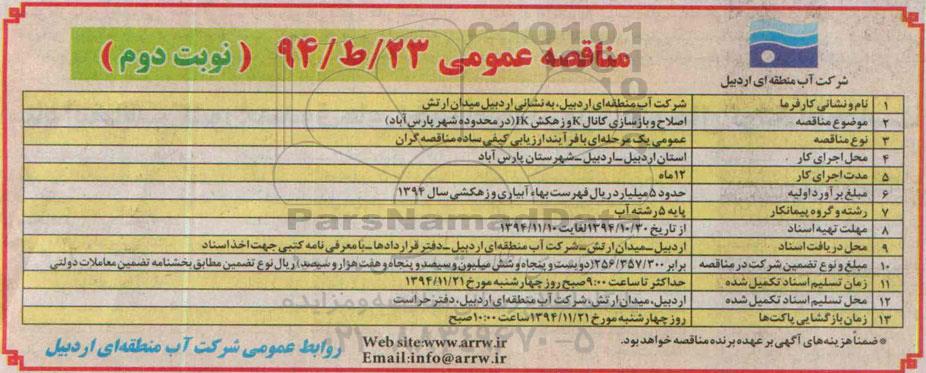 مناقصه عمومی ۲۳/ط/۹۴ (نوبت دوم)
شرکت آب منطقه ای اردبیل
۱ نام و نشانی کارفرما شرکت آب منطقه ای اردبیل، به نشانی اردبیل میدان ارتش
۲ موضوع مناقصه اصلاح و بازسازی کانال K و زهکش JK (در محدوده شهر پارس آباد)
۳ نوع مناقصه عمومی یک مرحله ای با فرآیند ارزیابی کیفی ساده مناقصه گران
۴ محل اجرای کار استان اردبیل - اردبیل - شهرستان پارس آباد
۵ مدت اجرای کار ۱۲ ماه
۶ مبلغ برآورد اولیه حدود ۵ میلیارد ریال فهرست بهاء آبیاری و زهکشی سال ۱۳۹۴
۷ رشته و گروه پیمانکار پایه ۵ رشته آب
۸ مهلت تهیه اسناد از تاریخ ۱۳۹۴/۱۰/۳۰ لغایت ۱۳۹۴/۱۱/۱۰
۹ محل دریافت اسناد اردبیل - میدان ارتش - شرکت آب منطقه ای اردبیل - دفتر قراردادها - با معرفی نامه کتبی جهت اخذ اسناد
۱۰ مبلغ و نوع تضمین شرکت در مناقصه برابر ۲۵۶/۳۵۷/۳۰۰ (دویست و پنجاه و شش میلیون و سیصد و پنجاه و هفت هزار و سیصد) ریال نوع تضمین مطابق بخشنامه تضمین معاملات دولتی
۱۱ زمان تسلیم اسناد تکمیل شده حداکثر تا ساعت ۹:۰۰ صبح روز چهارشنبه مورخ ۱۳۹۴/۱۱/۲۱
۱۲ محل تسلیم اسناد تکمیل شده اردبیل، میدان ارتش، شرکت آب منطقه ای اردبیل، دفتر حراست
۱۳ زمان بازگشایی پاکت ها روز چهارشنبه مورخ ۱۳۹۴/۱۱/۲۱ ساعت ۱۰:۰۰ صبح
* ضمنا هزینه های آگهی بر عهده برنده مناقصه خواهد بود.
Web site:www.arrw.ir
Email:info@arrw.ir
روابط عمومی شرکت آب منطقه ای اردبیل
ParsNamadData